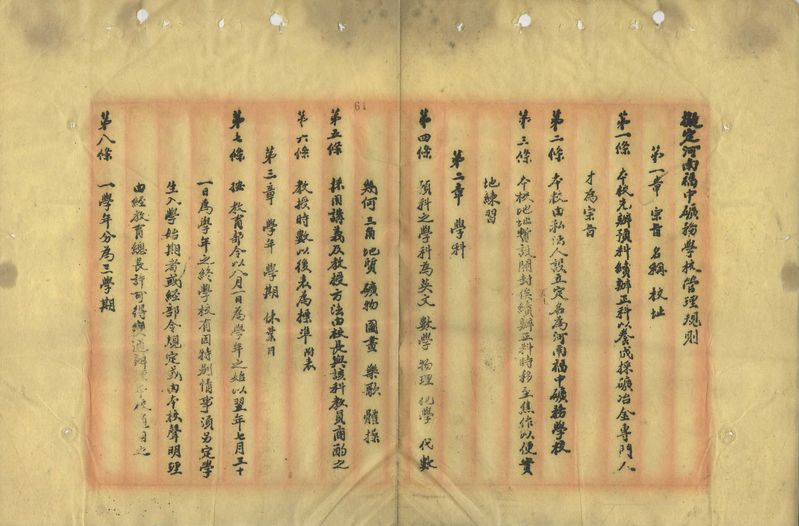 擬定河南福中礦務學校管理規則
第一章 宗旨 名稱 校址
第一條 本校先辦預科續辦正科以養成採礦冶金專門人
才為宗旨
第二條 本校由私法人設立定名為河南福中礦務學校
第三條 本校地址暫設開封俟續辦正科時移至焦作以便實
地練習
第二章 學科
第四條 預科之學科為英文 數學 物理 化學 代數
幾何 三角 地質 礦物 圖畫 樂歌 體操
第五條 採用講義及教授方法由校長與該科教員商酌之
第六條 教授時數以後表為標準 附表
第三章 學年 學期 休業日
第七條 按教育部令以八月一日為學年之始以翌年七月三十
一日為學年之終學校有因特別情事須另定學
生入學始期者或經部令規定或由本校聲明理
由經教育總長許可得變通辦
第八條 一學年分為三學期
61